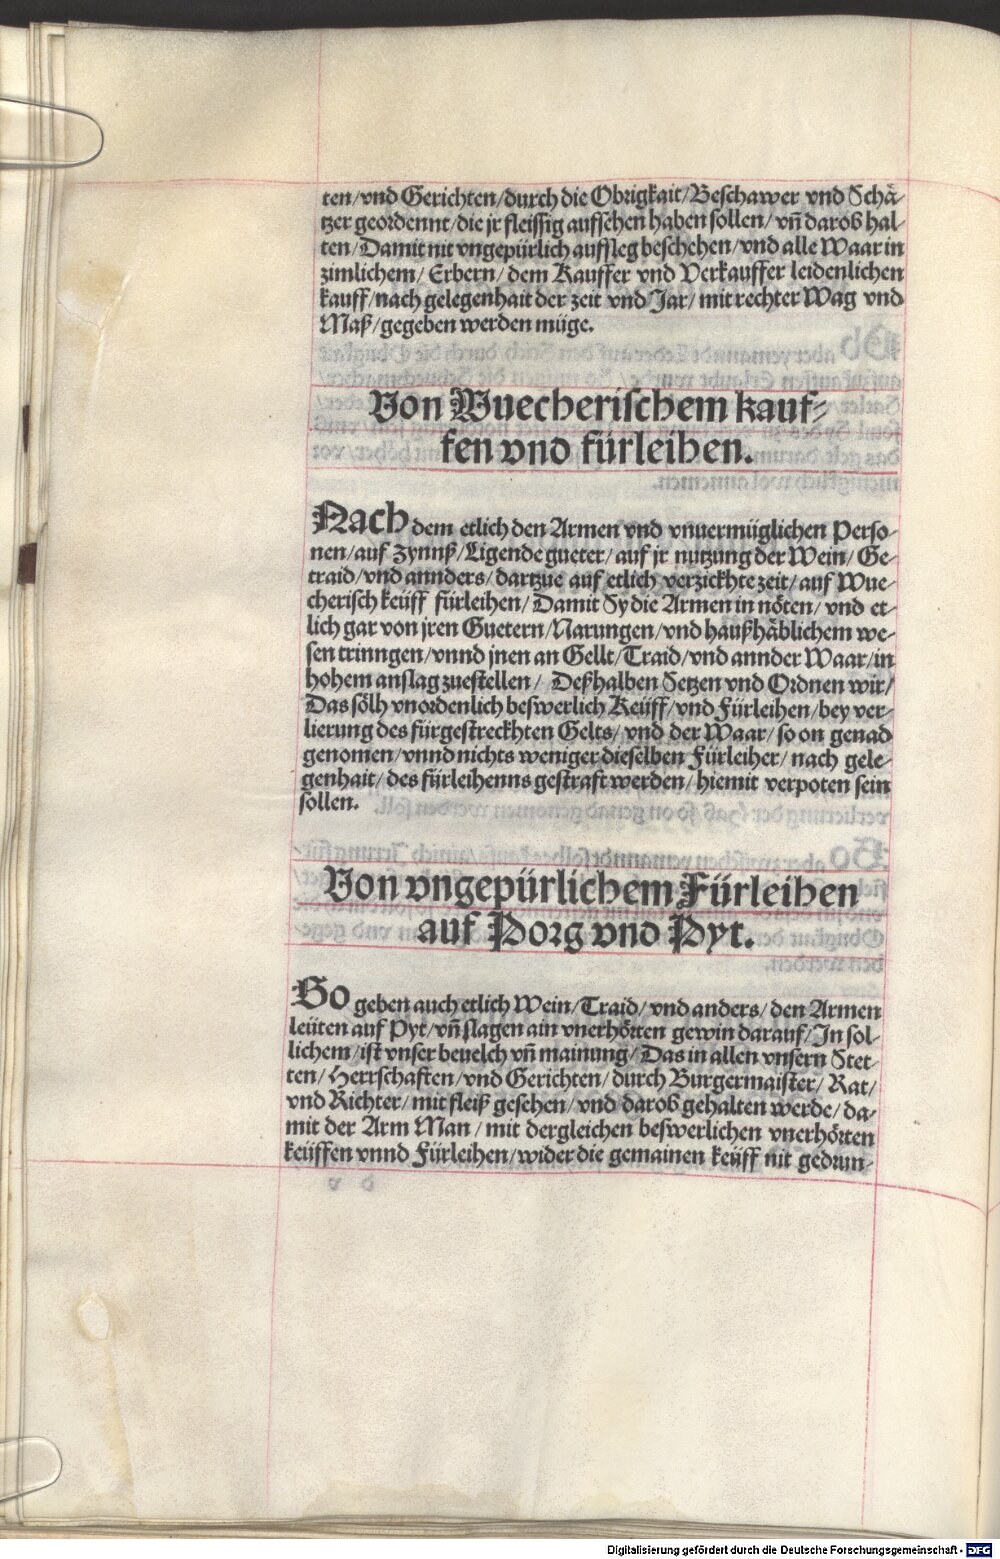 ten/vnd Gerichten/durch die Obrigkait/Beschawer vnd Schä-
tzer geordennt/die jr fleissig aufsehen haben sollen/ vñ darob hal-
ten/Damit nit vngepürlich aufsleg beschehen/vnd alle Waar in
zimlichem/ Erbern/ dem Kauffer vnd Verkauffer leidenlichen
kauff/nach gelegenhait der zeit vnd Jar/ mit rechter Wag vnd
Maß/gegeben werden müge.
Von Wuecherischem kauf-
fen vnd fürleihen.
Nach dem etlich den Armen vnd vnuermüglichen Perso-
nen/auf Zynnß/Ligende gueter/ auf jr nutzung der Wein/ Ge-
traid/vnd annders/ dartzue auf etlich verzickhte zeit/ auf Wue-
cherisch keüff fürleihen/ Damit Sy die Armen in nöten/ vnd et-
lich gar von jren Guetern/Narungen/vnd haußhäblichem we-
sen trinngen/vnnd jnen an Gellt/Traid/vnd annder Waar/in
hohem anslag zuestellen/ Deßhalben Setzen vnd Ordnen wir/
Das sölh vnordenlich beswerlich Keüff/vnd Fürleihen/bey ver-
lierung des fürgestreckhten Gelts/vnd der Waar/ so on genad
genomen/vnnd nichts weniger dieselben Fürleiher/ nach gele-
genhait/des fürleihenns gestraft werden/hiemit verpoten sein
sollen.
Von vngepürlichem Fürleihen
auf Porg vnd Pyt.
So geben auch etlich Wein/Traid/vnd anders/den Armen
leüten auf Pyt/vñ slagen ain vnerhörten gewin darauf/In sol-
lichem/ist vnser beuelch vñ mainung/ Das in allen vnsern Stet-
ten/ Herrschaften/vnd Gerichten/durch Burgermaister/ Rat/
vnd Richter/mit fleiß gesehen/vnd darob gehalten werde/da-
mit der Arm Man/ mit dergleichen beswerlichen vnerhörten
keüffen vnnd Fürleihen/wider die gemainen keüff nit gedrun-
Digitalisierung gefördert durch die Deutsche Forschungsgemeinschaft - DFG